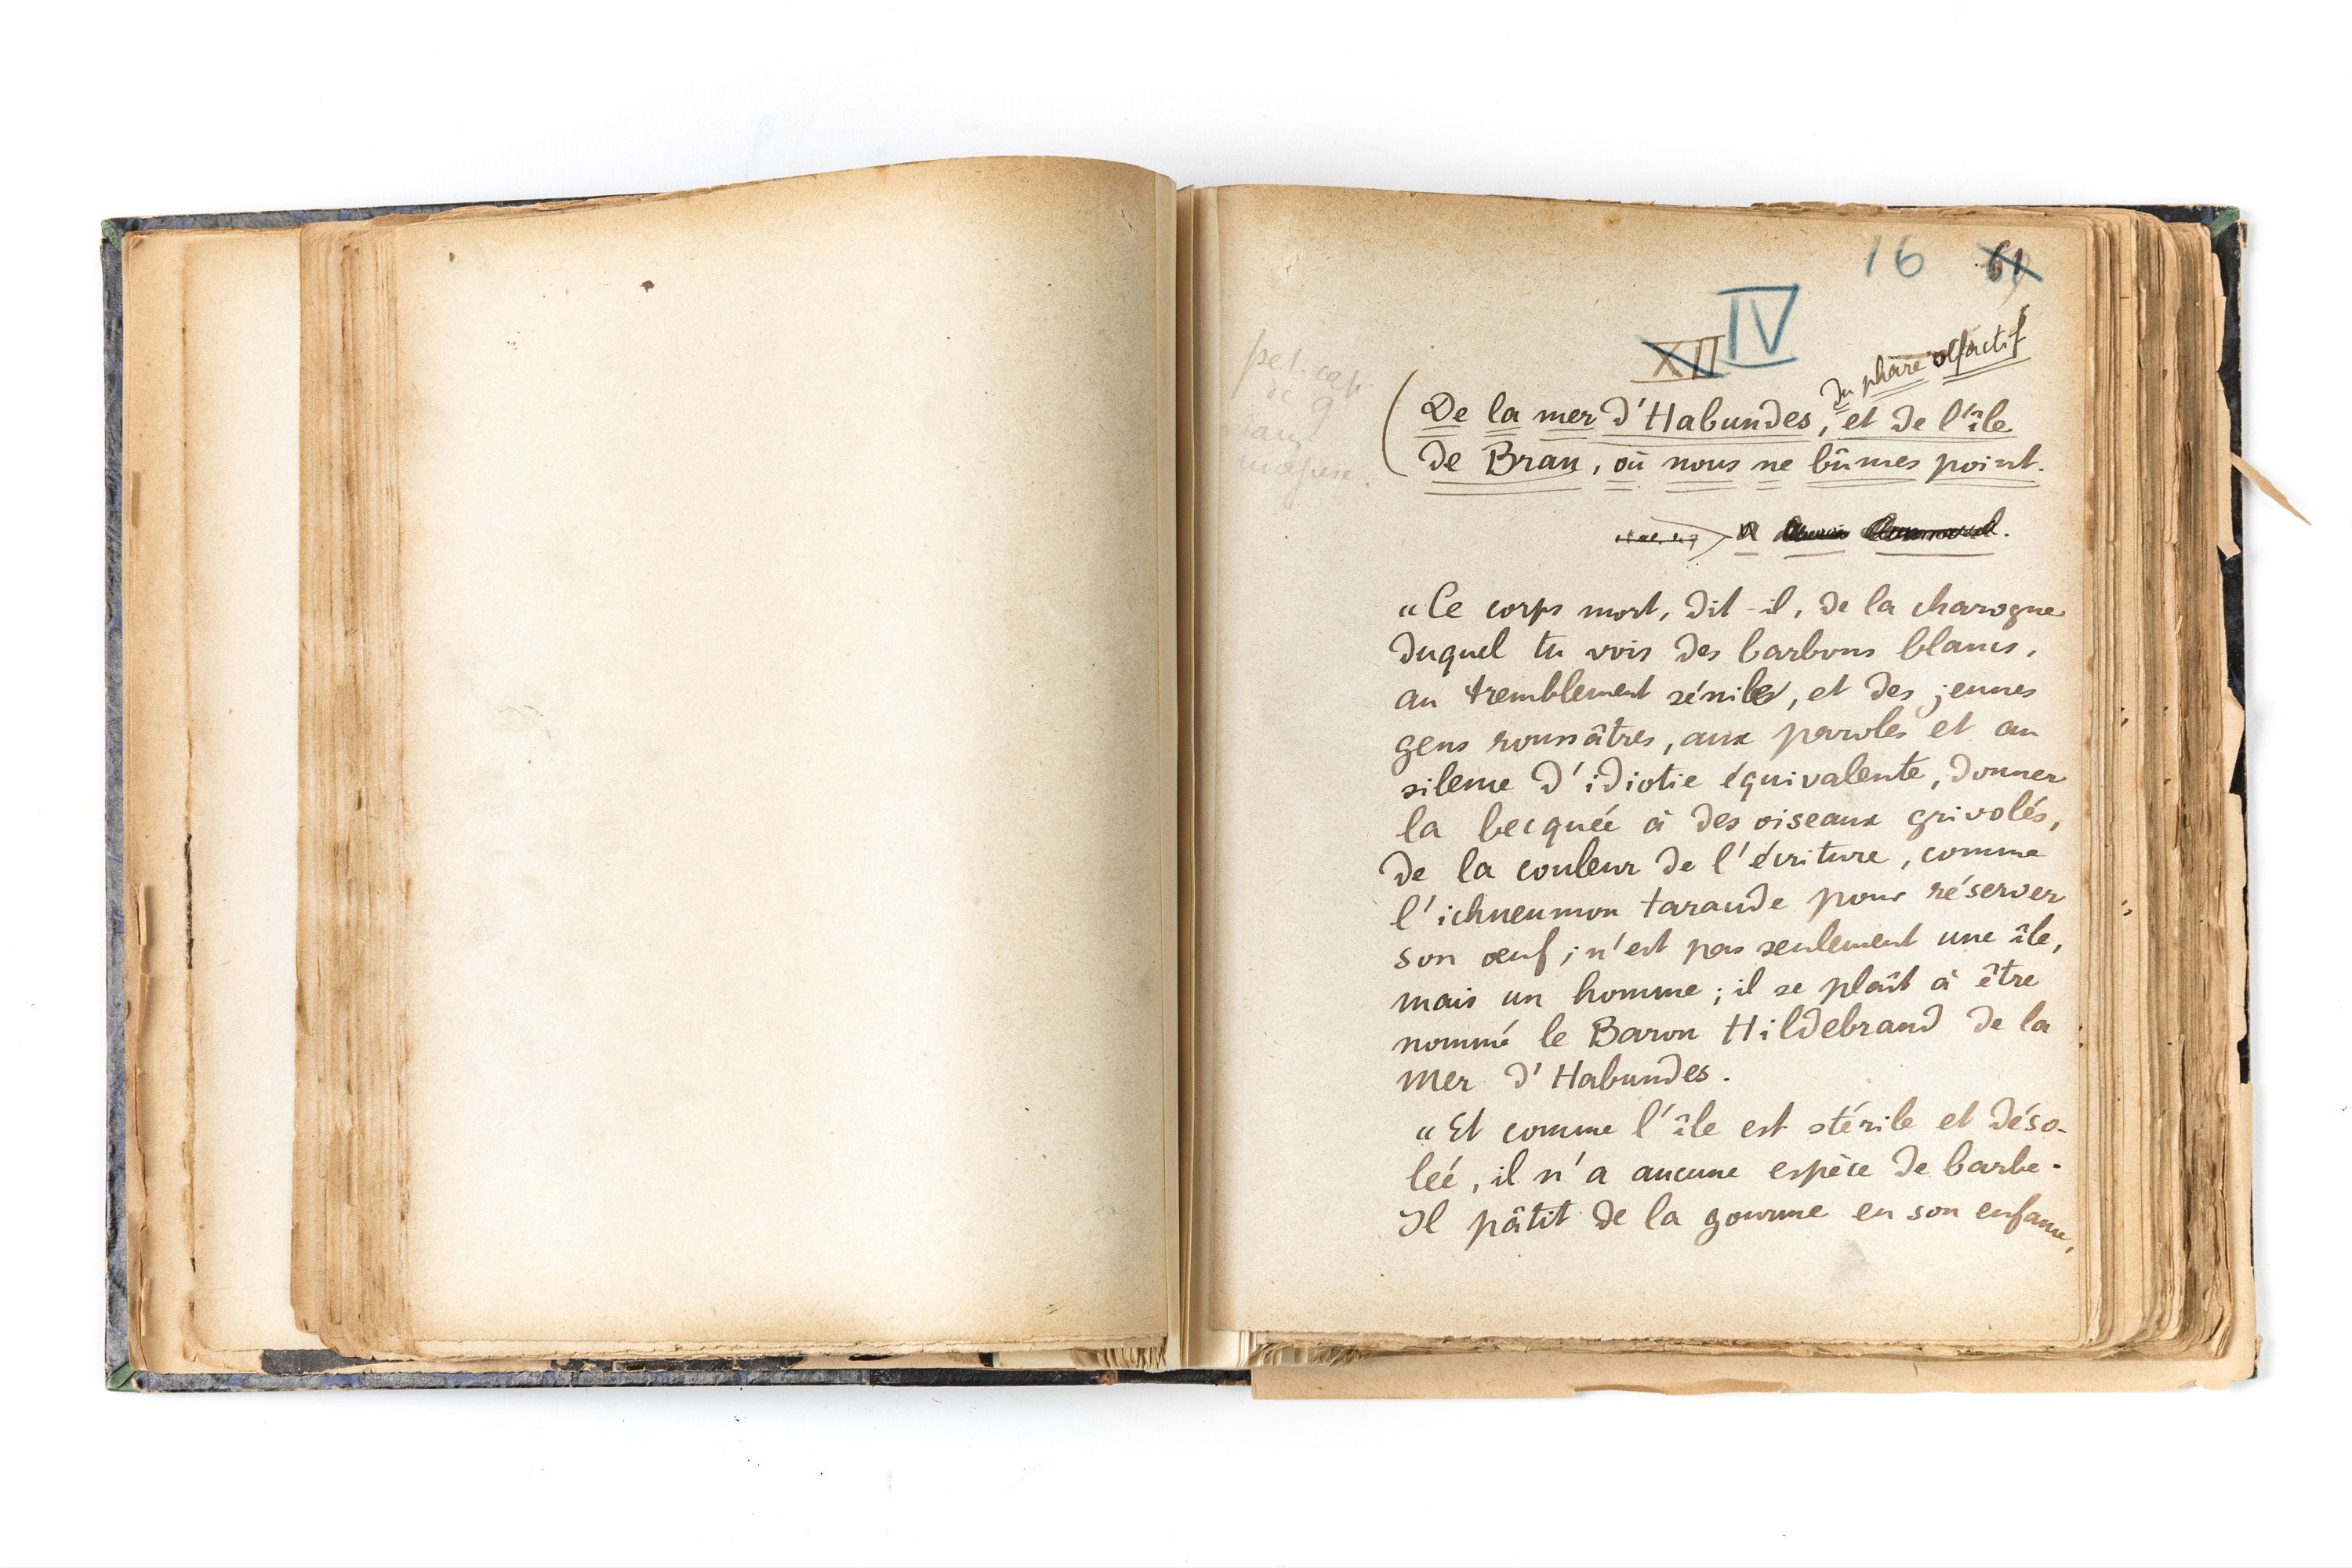 16 61
XII IV
du phare olfactif
De la mer d'Habundes, et de l'île
de Bran, où nous ne bûmes point.
A
« Ce corps mort, dit-il, de la charogne
duquel tu vois des barbons blancs,
au tremblement sénile, et des jeunes
gens roussâtres, aux paroles et au
silence d'idiotie équivalente, donner
la becquée à des oiseaux grivolés,
de la couleur de l'écriture, comme
l'ichneumon taraude pour réserver
son œuf ; n'est pas seulement une île,
mais un homme ; il se plaît à être
nommé le Baron Hildebrand de la
mer d'Habundes.
« Et comme l'île est stérile et déso-
lée, il n'a aucune espèce de barbe.
Il pâtit de la gourme en son enfance,